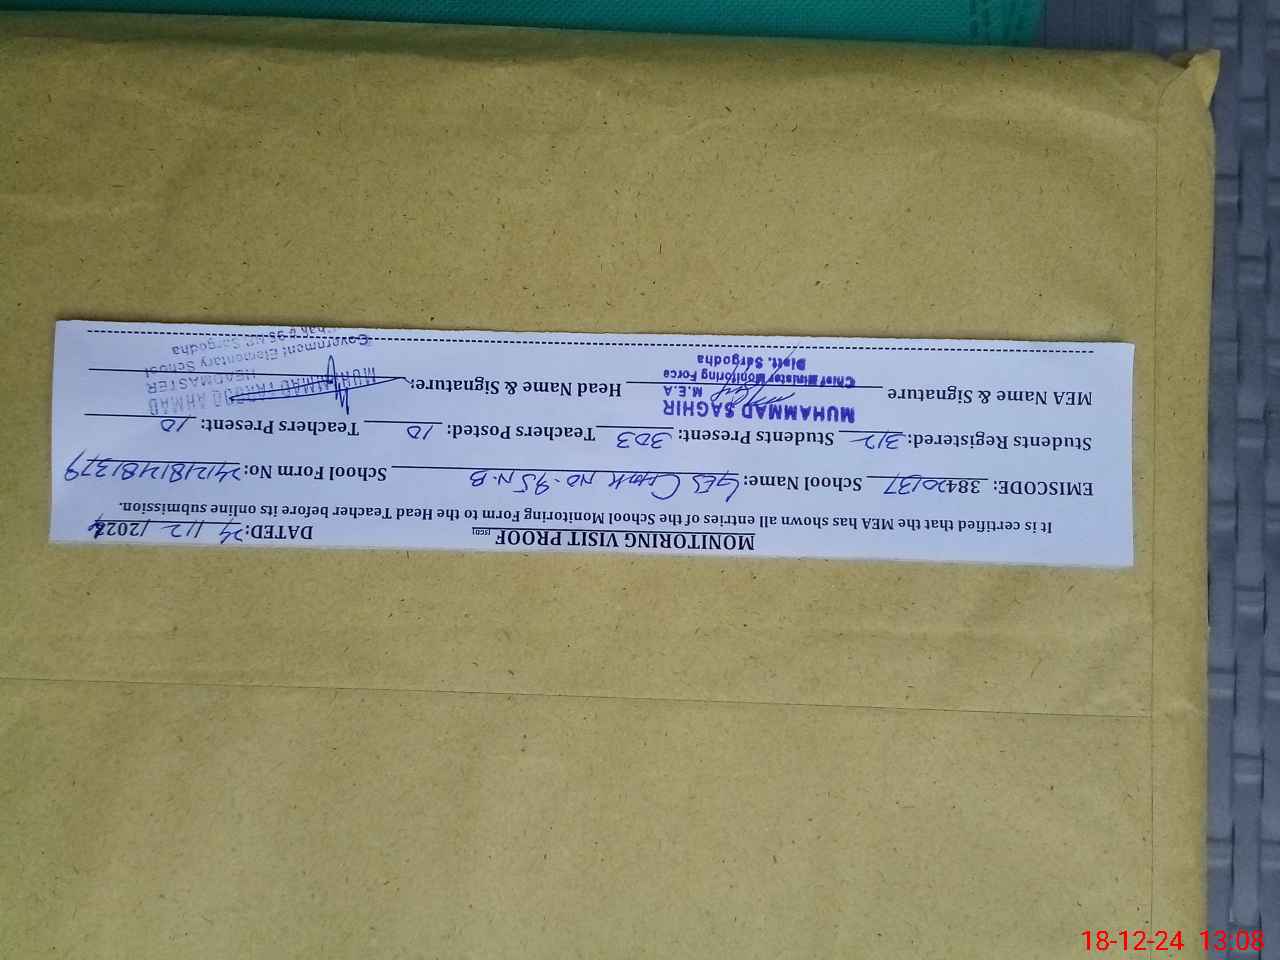 MONITORING VISIT PROOF [SCD] DATED: 24 / 12 / 2024
It is certified that the MEA has shown all entries of the School Monitoring Form to the Head Teacher before its online submission.
EMISCODE: 38420137 School Name: GES Chak No. 95 N.B School Form No:
Students Registered: 312 Students Present: 303 Teachers Posted: 10 Teachers Present: 10
MEA Name & Signature Head Name & Signature:
MUHAMMAD SAGHIR
M.E.A
Chief Minister Monitoring Force
Distt. Sargodha
MUHAMMAD FAROOQ AHMAD
HEADMASTER
Government Elementary School
Chak # 95 NB Sargodha
18-12-24 13:08